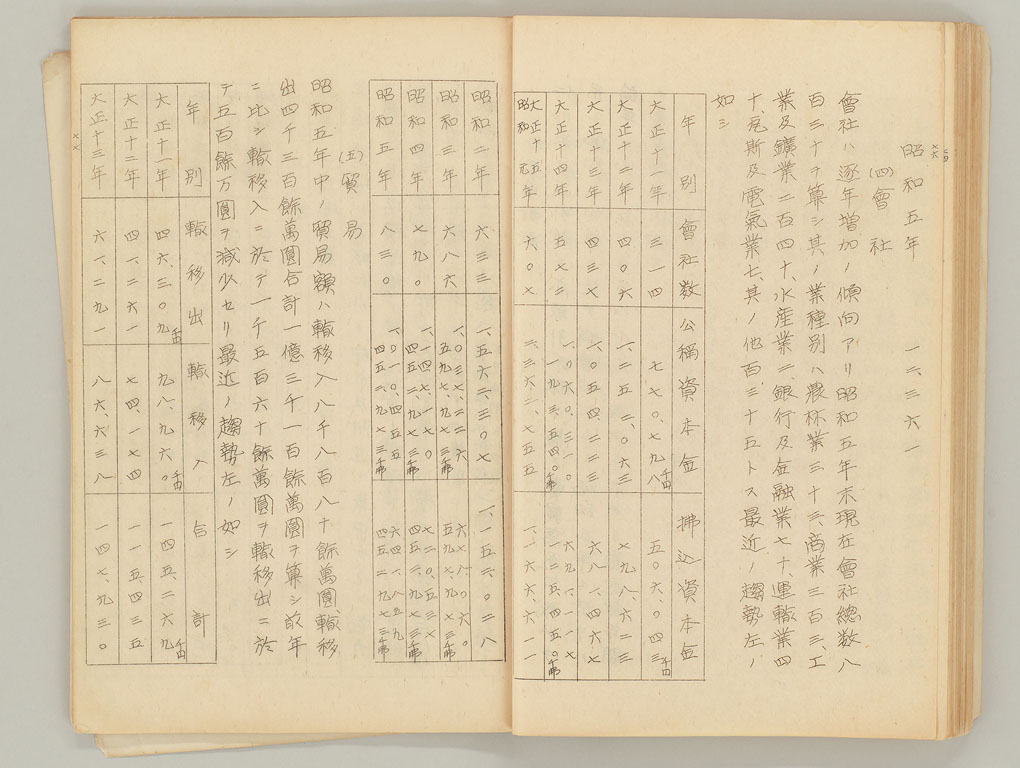 昭和五年 一二、三六一
(四)會社
會社ハ逐年增加ノ傾向アリ昭和五年末現在會社總数八
百三十ヲ算シ其ノ業種別ハ農林業三十三、商業三百三、工
業及鑛業二百四十、水産業二、銀行及金融業七十、運輸業四
十、瓦斯及電氣業七、其ノ他百三十五トス最近ノ趨勢左ノ
如シ
年別 會社数 公稱資本金 拂込資本金
大正十一年 三一四 七七〇、七九八千円 五〇六、〇四三千円
大正十二年 四〇六 一、二五二、〇六三 七九八、六二三
大正十三年 四三七 一、〇五四、二二三 六八一、四六七
大正十四年 五七二 一、〇六〇、三一〇 一九三、五四〇千弗 六九一、一一七 一五二、四五〇千弗
大正十五年昭和元年 六〇七 二、三六二、七五五 一、一六六、六一一
昭和二年 六三三 一、五六二、三〇七 一、一五二、〇二八
昭和三年 六八六 一、〇三七、二二六 五九七、九七三千弗 六七八、〇六〇 五九七、九七三千弗
昭和四年 七九〇 一、一四七、一七〇 四五二、九七三千弗 七二〇、五三七 四五二、九七三千弗
昭和五年 八三〇 一、〇一〇、四五五 四五二、九七三千弗 六四一、八五九 四五二、九七三千弗
(五)貿易
昭和五年中ノ貿易額ハ輸移入八千八百八十餘萬圓、輸移
出四千三百餘萬圓合計一億三千一百餘萬圓ヲ算シ前年
ニ比シ輸移入ニ於テ一千五百六十餘萬圓ヲ輸移出ニ於
テ五百餘万圓ヲ減少セリ最近ノ趨勢左ノ如シ
年別 輸移出 輸移入 合計
大正十一年 四六、三〇九千円 九八、九六〇千円 一四五、二六九千円
大正十二年 四一、二六一 七四、一七四 一一五、四三五
大正十三年 六一、二九一 八六、六三八 一四七、九三〇